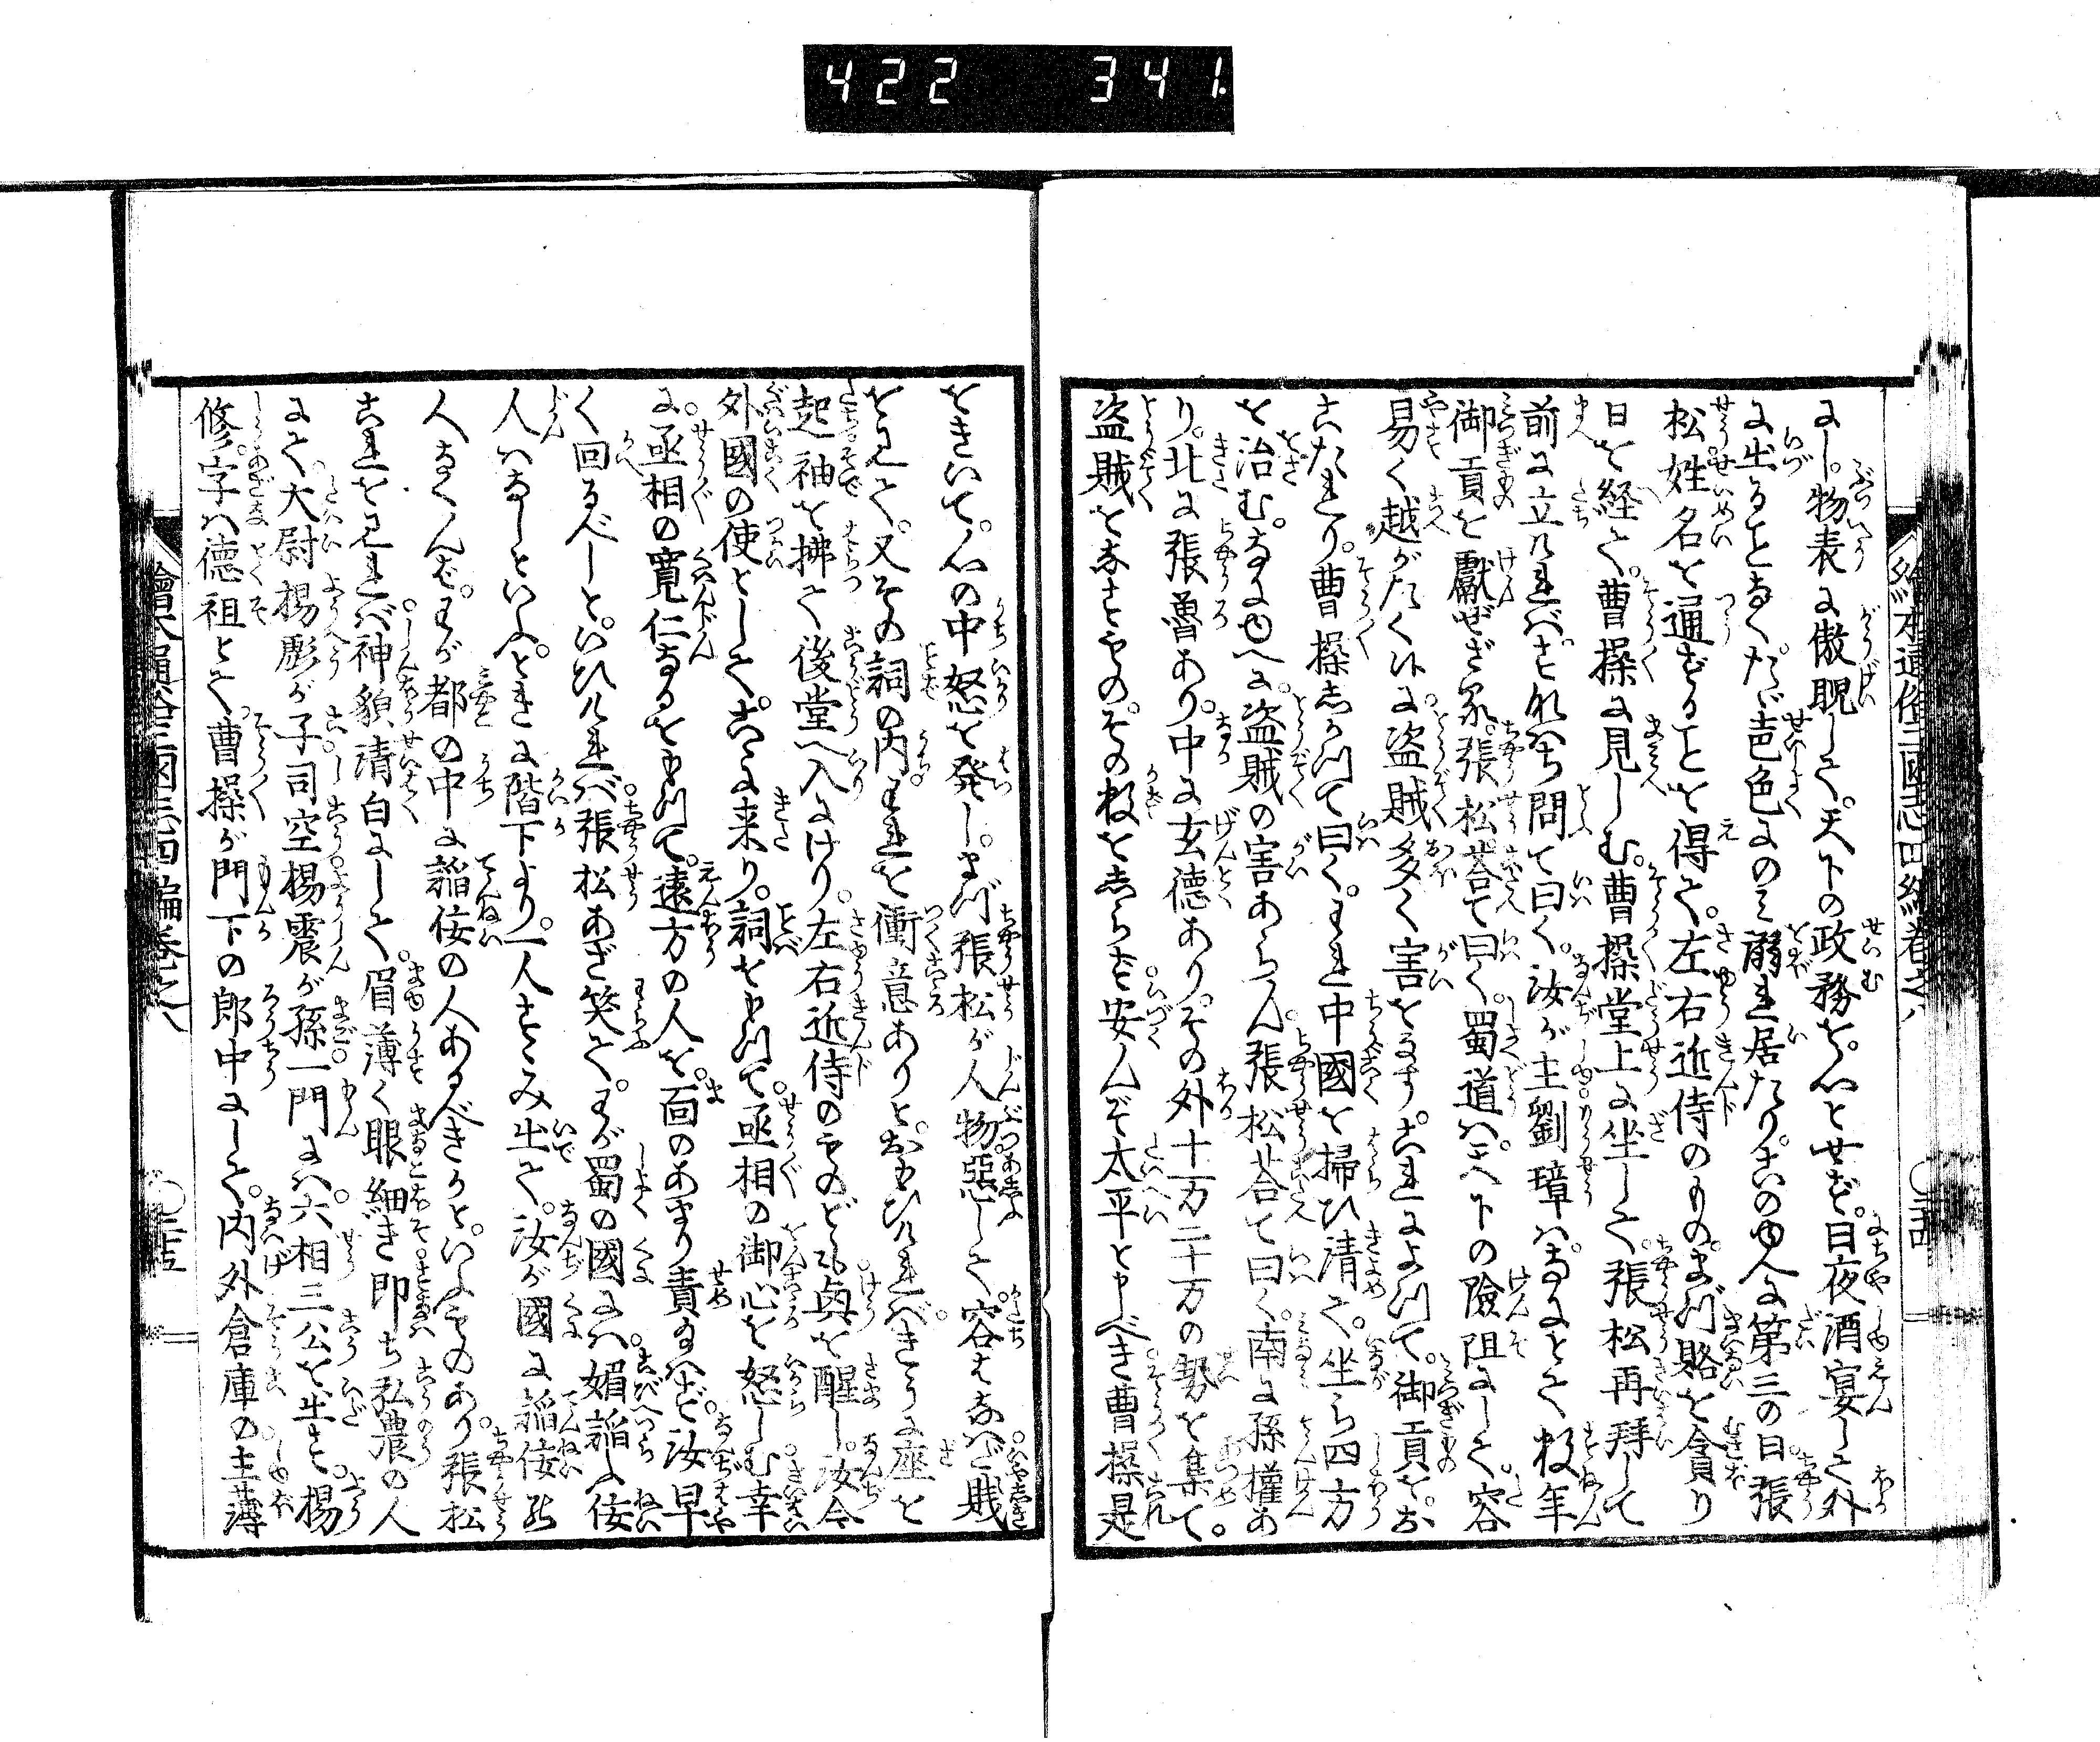 422 341
繪本通俗三國志四編卷之八
にし。物表に傲睨して。天下の政務を。心とせず。日夜酒宴して外
に出ることなく。たゞ色にのミ溺れ居たり。この由へに第三の日。張
松姓名を通ずることを得て。左右近侍のもの。まづ賂を貪り
日を経て。曹操に見しむ。曹操堂上に坐して。張松再拜して
前に立けれバ。すなハち問て曰く。汝が主劉璋ハ。なにとて數年
御貢を獻ぜざる。張松荅て曰く。蜀道ハ。天下の險阻にして。容
易く越がたく候に。盗賊多く害をなす。これによつて。御貢を。お
こたれり。曹操しかつて曰く。われ中國を掃ひ清めて。坐ら四方
を治む。なにゆへに。盗賊の害あらん。張松荅て曰く。南に孫權あ
り。北に張魯あり。中に玄德あり。その外十万二十万の勢を集て。
盗賊をなすもの。その數をしらず。安んぞ太平と申べき。曹操是
をきいて。心の中怒を発し。まづ張松が人物。惡して。容もなハだ賎
を見て。又その詞の内。われを衝意ありと。おもひけれバ。きうに座を
起袖を拂て後堂へ入にけり。左右近侍のもの。ども興を醒し。汝今
外國の使として。こゝに来り。詞をもつて。丞相の御心を怒しむ。幸
に。丞相の寛仁なるをもつて。遠方の人を。面のあまり責給ハず。汝早
く回るべしと。いひけれバ。張松あざ笑て。わが蜀の國にハ。媚謟ふ佞
人ハなしといふ。ときに階下より。一人すゝみ出て。汝が國に謟佞の
人なくんば。わが都の中に謟佞の人あるべきかと。いふものあり。張松
これを見れバ。神貌清白にして。眉薄く眼細き。即ち弘農の人
にて。大尉楊彪が子。司空楊震が孫。一門にハ。六相三公を生ず。楊
修。字ハ德祖とて。曹操が門下の郎中にして。内外倉庫の主薄
繪本通俗三國志四編卷之八